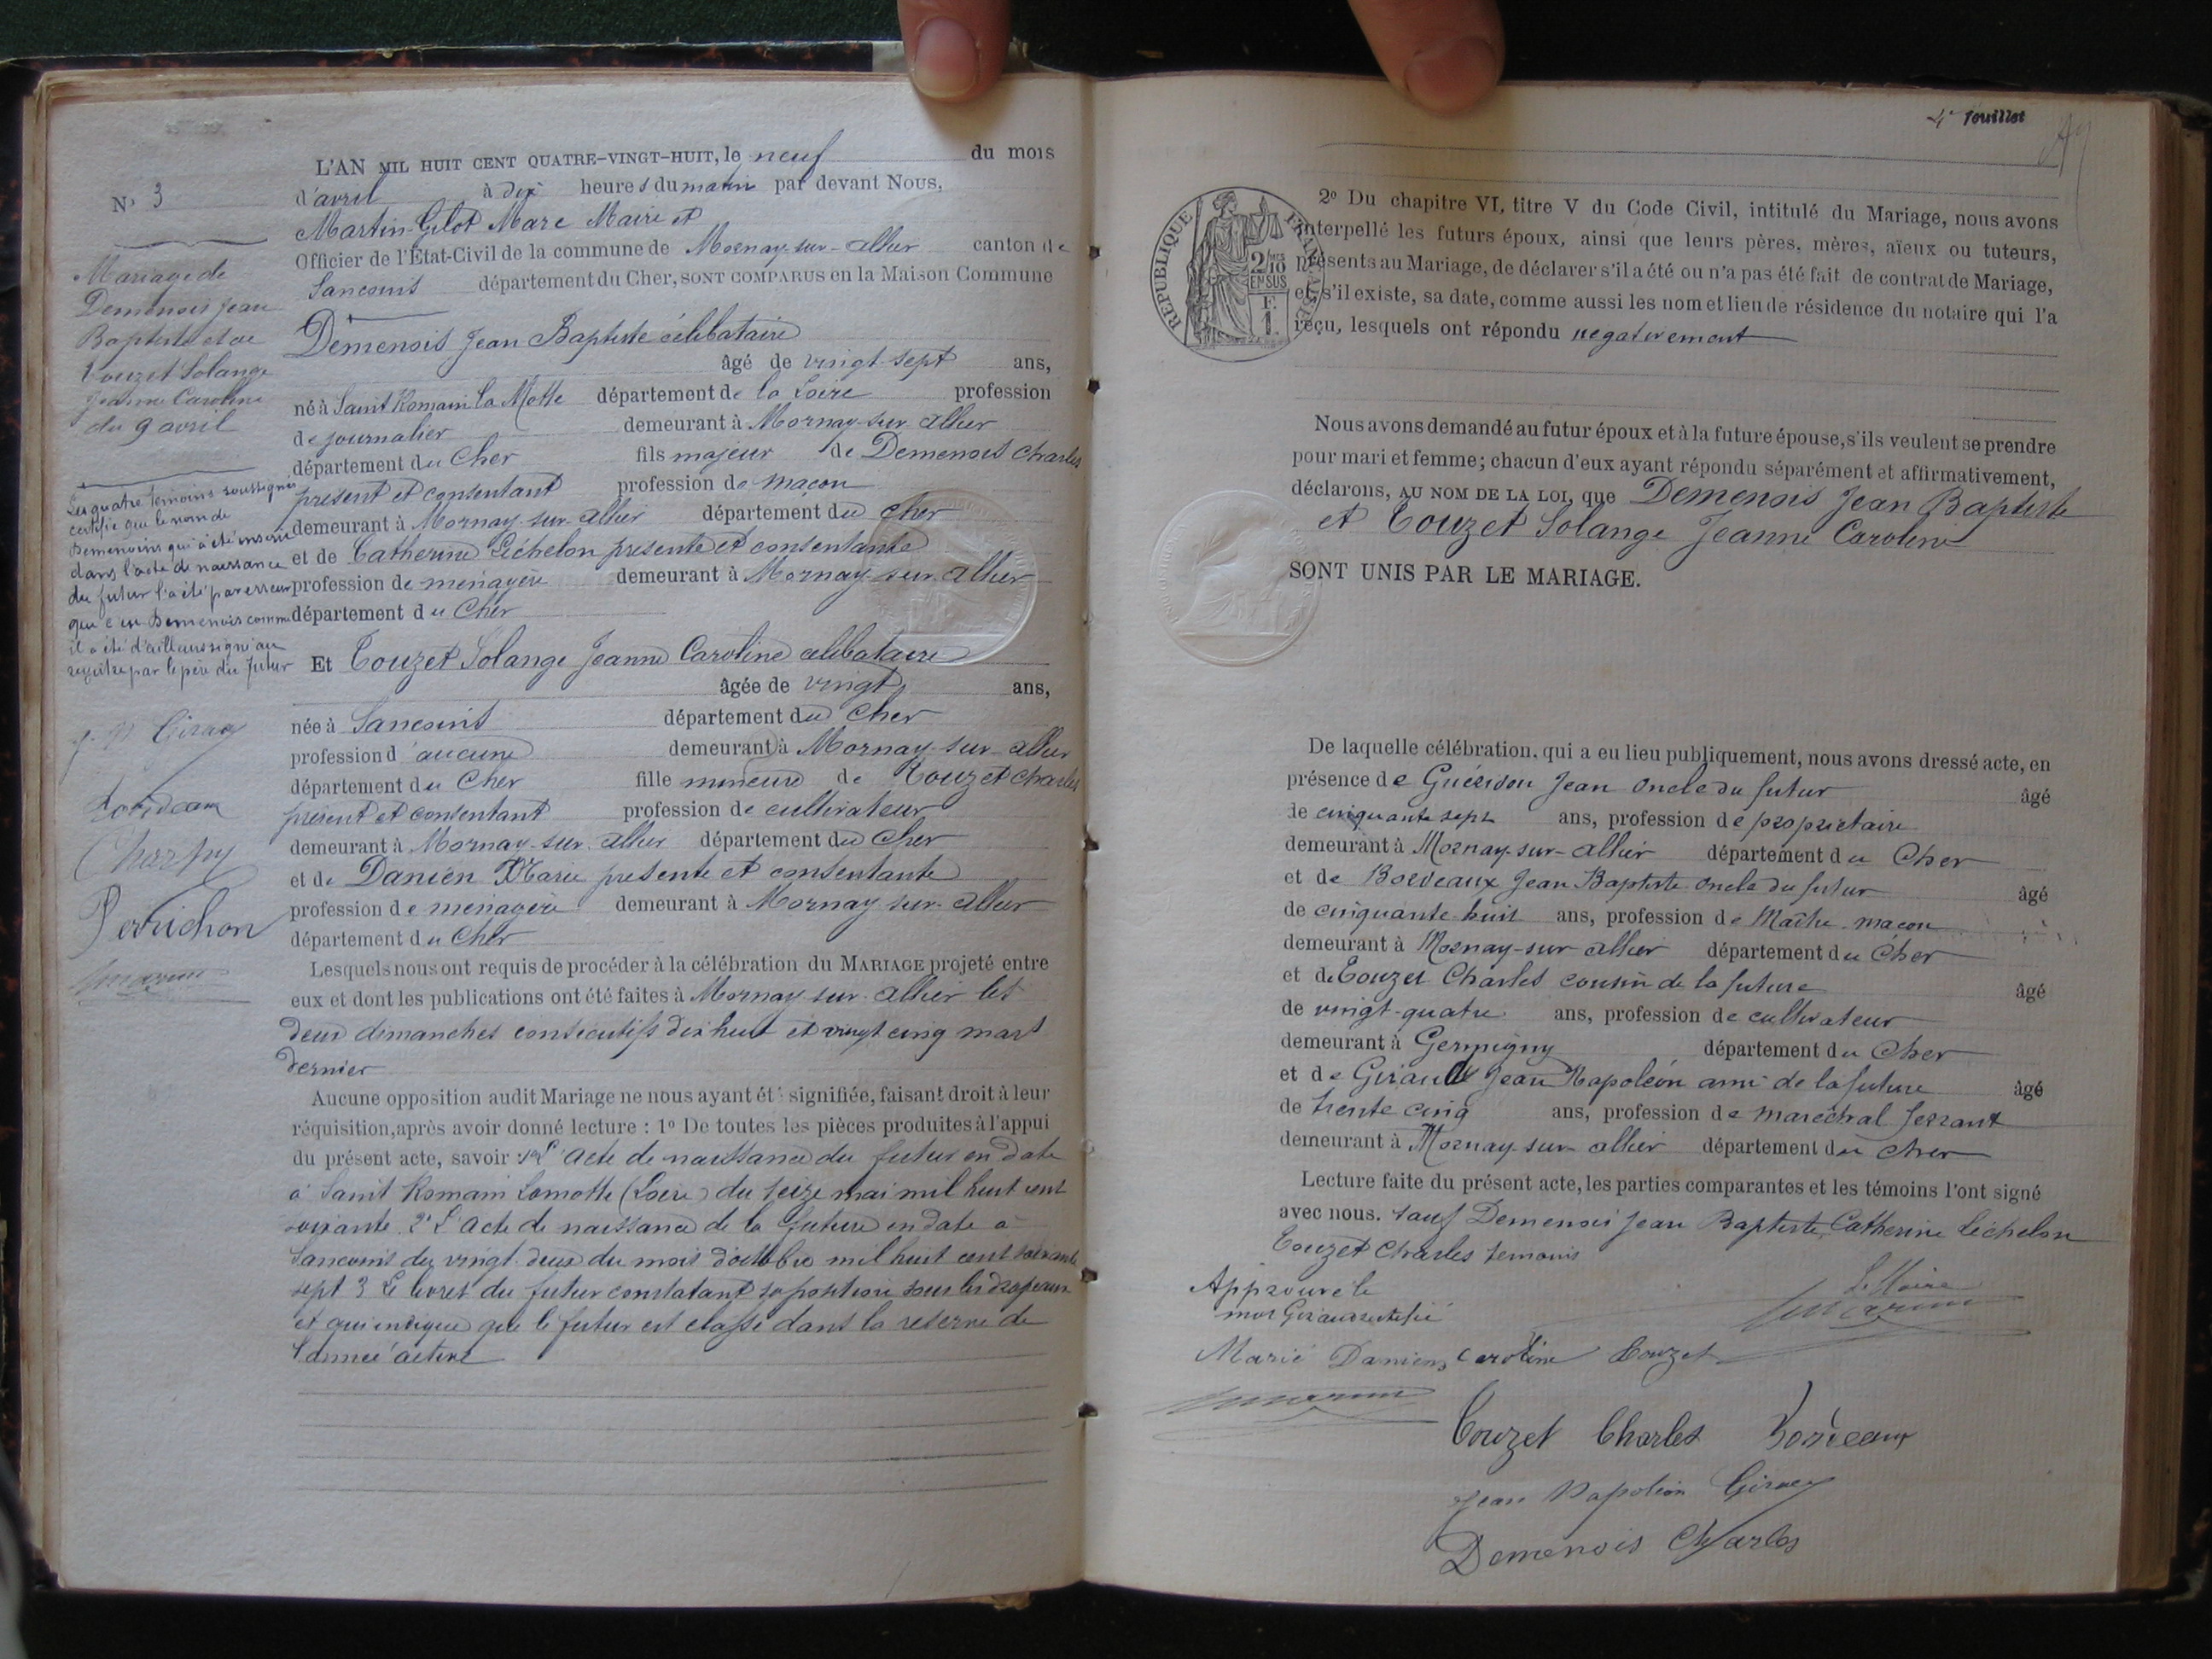 N° 3
Mariage de
Demenois Jean
Baptiste et de
Touzet Solange
Jeanne Caroline
du 9 avril
Les quatre témoins soussignés
certifie que le nom de
Demenoins qui a été inseré
dans l'acte de naissance
du futur l'a été par erreur
que c'est Demenois comme
il a été d'ailleurs signé au
registre par le père du futur
Bordeaux
Charpy
Perrichon
L'AN MIL HUIT CENT QUATRE-VINGT-HUIT, le neuf du mois
d'avril à dix heures du matin par devant Nous,
Martin-Gilot Marc Maire et
Officier de l'État-Civil de la commune de Mornay-sur-allier canton de
Sancoins département du Cher, SONT COMPARUS en la Maison Commune
Demenois Jean Baptiste célibataire
âgé de vingt-sept ans,
né à Saint Romain la Motte département de la Loire profession
de journalier demeurant à Mornay-sur allier
département du Cher fils majeur de Demenois Charles
présent et consentant profession de maçon
demeurant à Mornay-sur-allier département du Cher
et de Catherine Léchelon présente et consentante
profession de ménagère demeurant à Mornay-sur-allier
département du Cher
Et Touzet Solange Jeanne Caroline célibataire
âgée de vingt ans,
née à Sancoins département du Cher
profession d'aucune demeurant à Mornay-sur-allier
département du Cher fille mineure de Touzet Charles
présent et consentant profession de cultivateur
demeurant à Mornay-sur-allier département du Cher
et de Danien Marie présente et consentante
profession de ménagère demeurant à Mornay-sur-allier
département du Cher
Lesquels nous ont requis de procéder à la célébration du MARIAGE projeté entre
eux et dont les publications ont été faites à Mornay-sur-allier les
deux dimanches consecutifs dix huit et vingt cinq mars
dernier
Aucune opposition audit Mariage ne nous ayant été signifiée, faisant droit à leur
réquisition, après avoir donné lecture : 1° De toutes les pièces produites à l'appui
du présent acte, savoir : 1° L'acte de naissance du futur en date
à Saint Romain Lamotte (Loire) du seize mai mil huit cent
soixante 2° L'acte de naissance de la future en date à
Sancoins du vingt deux du mois d'octobre mil huit cent soixante
sept 3 Le livret du futur constatant sa position sous les drapeaux
et qui indique que le futur est classé dans la reserve de
l'armée active
4e feuillet
RÉPUBLIQUE FRANÇAISE
2/10 EN SUS
F. 1.
2° Du chapitre VI, titre V du Code Civil, intitulé du Mariage, nous avons
interpellé les futurs époux, ainsi que leurs pères, mères, aïeux ou tuteurs,
présents au Mariage, de déclarer s'il a été ou n'a pas été fait de contrat de Mariage,
et, s'il existe, sa date, comme aussi les nom et lieu de résidence du notaire qui l'a
reçu, lesquels ont répondu negativement
Nous avons demandé au futur époux et à la future épouse, s'ils veulent se prendre
pour mari et femme; chacun d'eux ayant répondu séparément et affirmativement,
déclarons, AU NOM DE LA LOI, que Demenois Jean Baptiste
et Touzet Solange Jeanne Caroline
SONT UNIS PAR LE MARIAGE.
De laquelle célébration, qui a eu lieu publiquement, nous avons dressé acte, en
présence de Guéridon Jean oncle du futur âgé
de cinquante sept ans, profession de propriétaire
demeurant à Mornay-sur-allier département du Cher
et de Bordeaux Jean Baptiste oncle du futur âgé
de cinquante-huit ans, profession de Maître-maçon
demeurant à Mornay-sur-allier département du Cher
et de Touzet Charles cousin de la future âgé
de vingt-quatre ans, profession de cultivateur
demeurant à Germigny département du Cher
et de Giraud Jean Napoléon ami de la future âgé
de trente cinq ans, profession de maréchal ferrant
demeurant à Mornay-sur-allier département du Cher
Lecture faite du présent acte, les parties comparantes et les témoins l'ont signé
avec nous. sauf Demenois Jean Baptiste, Catherine Léchelon
Touzet Charles temoins
Approuvé le
mot Giraud rectifié
Le Maire
Marie Danien Caroline Touzet
Touzet Charles Bordeaux
Jean Napoléon Giraud
Demenois Charles